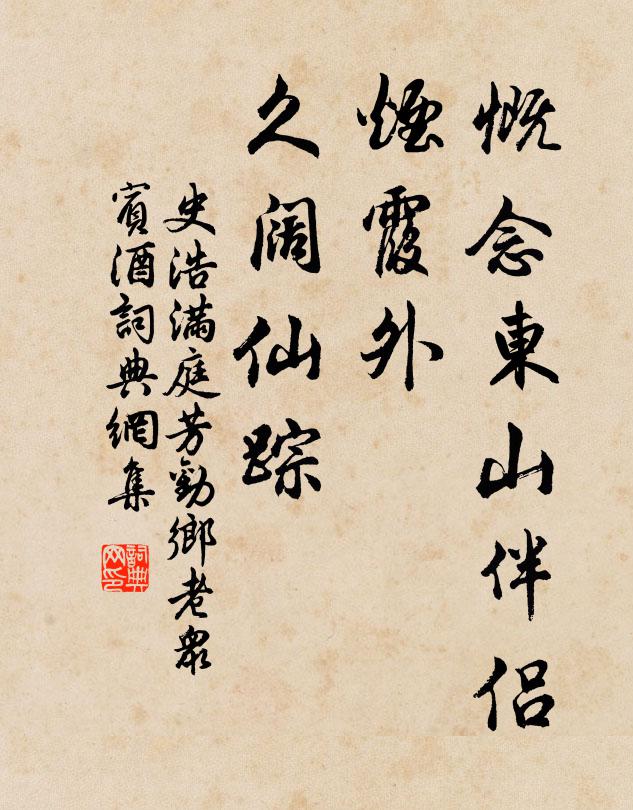 慨念東山伴侶
煙霞外
久闊仙踪
史浩滿庭芳勸鄉老衆
賓酒詞典網集
詞典网印